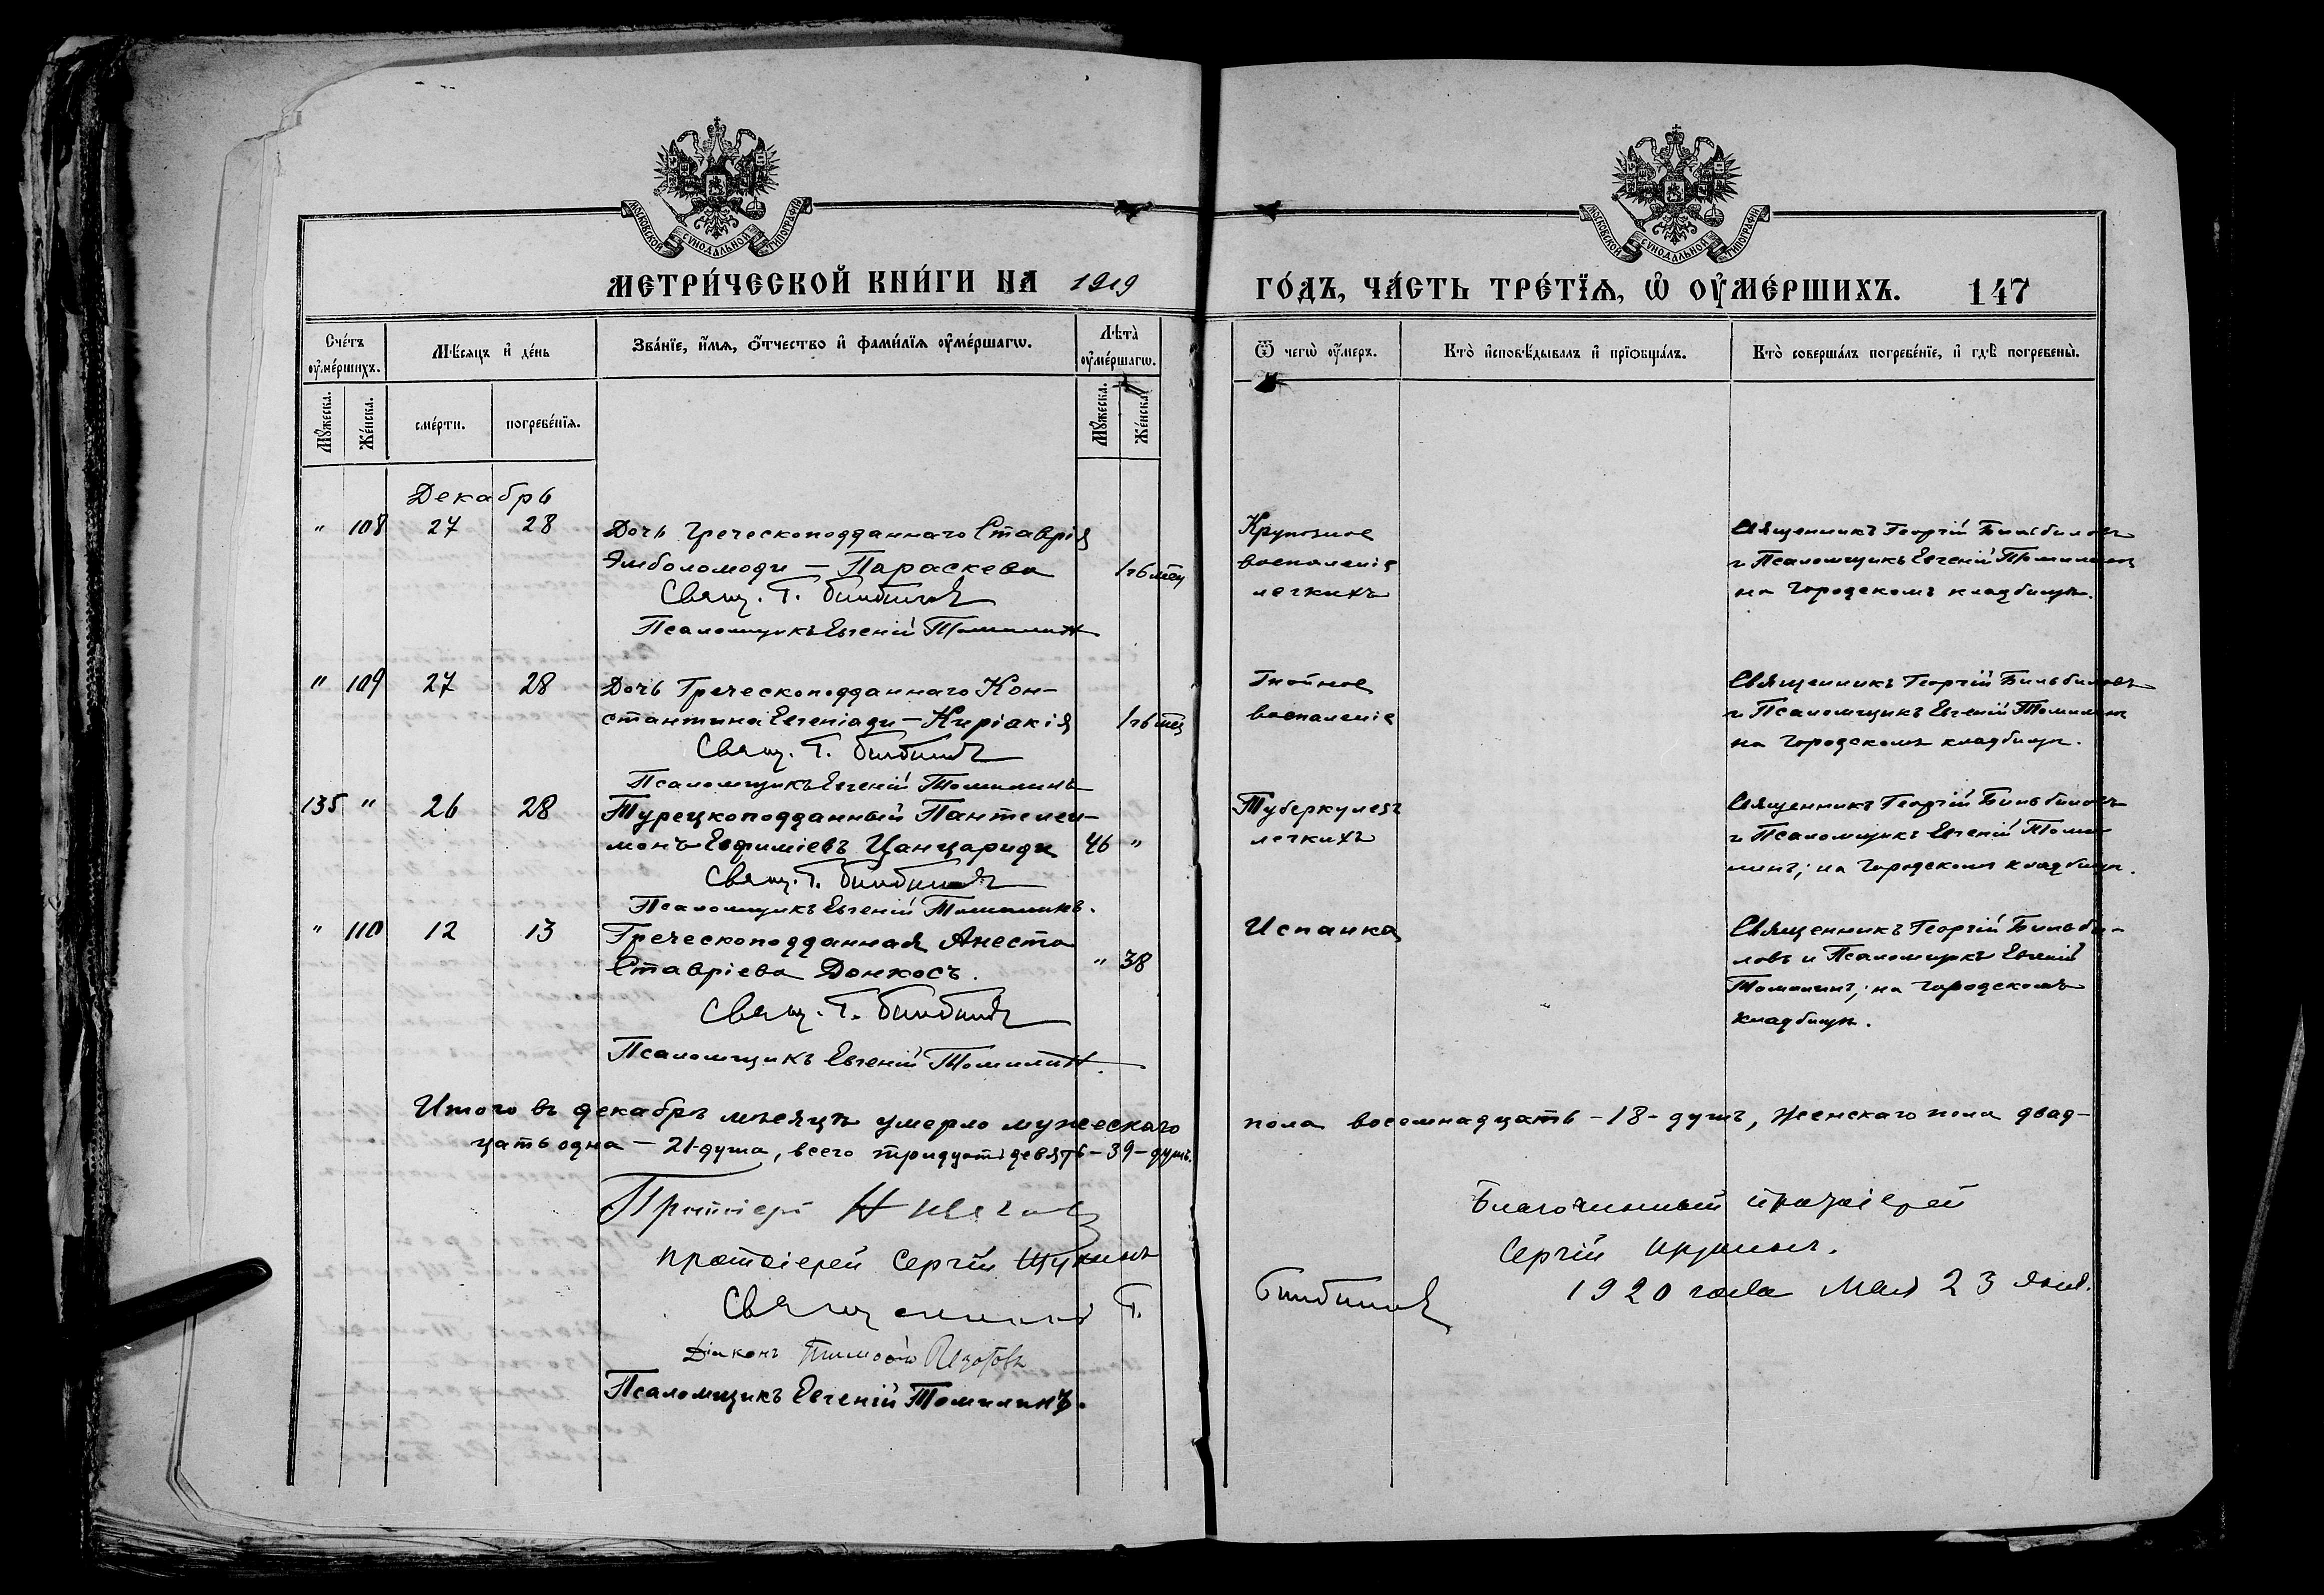 МОСКОВСКОЙ СѴНОДАЛЬНОЙ ТИПОГРАФІИ
МОСКОВСКОЙ СѴНОДАЛЬНОЙ ТИПОГРАФІИ
МЕТРИ́ЧЕСКОЙ КНИ́ГИ НА 1919 ГО́ДЪ, ЧА́СТЬ ТРЕ́ТЇѦ, Ѡ҆ ОУ҆МЕ́РШИХЪ. 147
Сче́тъ оу҆ме́ршихъ.
Мѣ́сяцъ и҆ де́нь
Зва́нїе, и҆́мѧ, ѻ҆́тчество и҆ фами́лїѧ оу҆ме́ршагѡ.
Лѣта̀ оу҆ме́ршагѡ.
Ѿ чегѡ̀ оу҆́меръ.
Кто̀ и҆сповѣ́дывалъ и҆ прїѻбща́лъ.
Кто̀ соверша́лъ погребе́нїе, и҆ гдѣ̀ погребены̀.
Мꙋ́жеска.
Же́нска.
сме́рти.
погребе́нїѧ.
Мꙋ́жеска.
Же́нска.
Декабрь
" 108 27 28 Дочь Греческоподданнаго Ставрія
Эмболомоди — Параскева 1г6мѣц
Свящ. Г. Бильбиловъ
Псаломщикъ Евгеній Томилинъ
Крупозное
воспаленіе
легкихъ
Священникъ Георгій Бильбиловъ
и Псаломщикъ Евгеній Томилинъ
на Городскомъ кладбищѣ.
" 109 27 28 Дочь Греческоподданнаго Кон-
стантина Евгеніади — Киріакія 1г6мѣц
Свящ. Г. Бильбиловъ
Псаломщикъ Евгеній Томилинъ
Гнойное
воспаленіе
Священникъ Георгій Бильбиловъ
и Псаломщикъ Евгеній Томилинъ
на Городскомъ кладбищѣ.
135 " 26 28 Турецкоподданный Пантелеи-
монъ Евфиміевъ Цанцариди 46 "
Свящ. Г. Бильбиловъ
Псаломщикъ Евгеній Томилинъ.
Туберкулезъ
легкихъ
Священникъ Георгій Бильбиловъ
и Псаломщикъ Евгеній Томи-
линъ; на Городскомъ кладбищѣ.
" 110 12 13 Греческоподданная Анеста
Ставріева Донжосъ. " 38
Свящ. Г. Бильбиловъ
Псаломщикъ Евгеній Томилинъ.
Испанка
Священникъ Георгій Бильби-
ловъ и Псаломщикъ Евгеній
Томилинъ; на Городскомъ
кладбищѣ.
Итого въ декабрѣ мѣсяцѣ умерло мужескаго пола восемнадцать — 18 — душъ, женскаго пола двад-
цать одна — 21 душа, всего тридцать девять — 39 — душъ.
Протоіерей
Протоіерей Сергій Щукинъ
Священникъ Г. Бильбиловъ
Діаконъ Тимоѳей
Псаломщикъ Евгеній Томилинъ.
Благочинный протоіерей
Сергій Щукинъ.
1920 года Мая 23 дня.